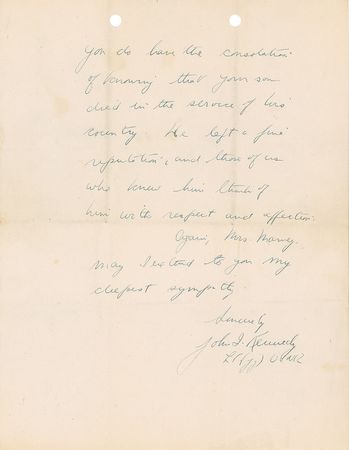 you do have the consolation
of knowing that your son
died in the service of his
country. He left a fine
reputation, and those of us
who knew him think of
him with respect and affection.
Again, Mrs. Marney,
may I extend to you my
deepest sympathy.
Sincerely
John F. Kennedy
Lt (jg) USNR